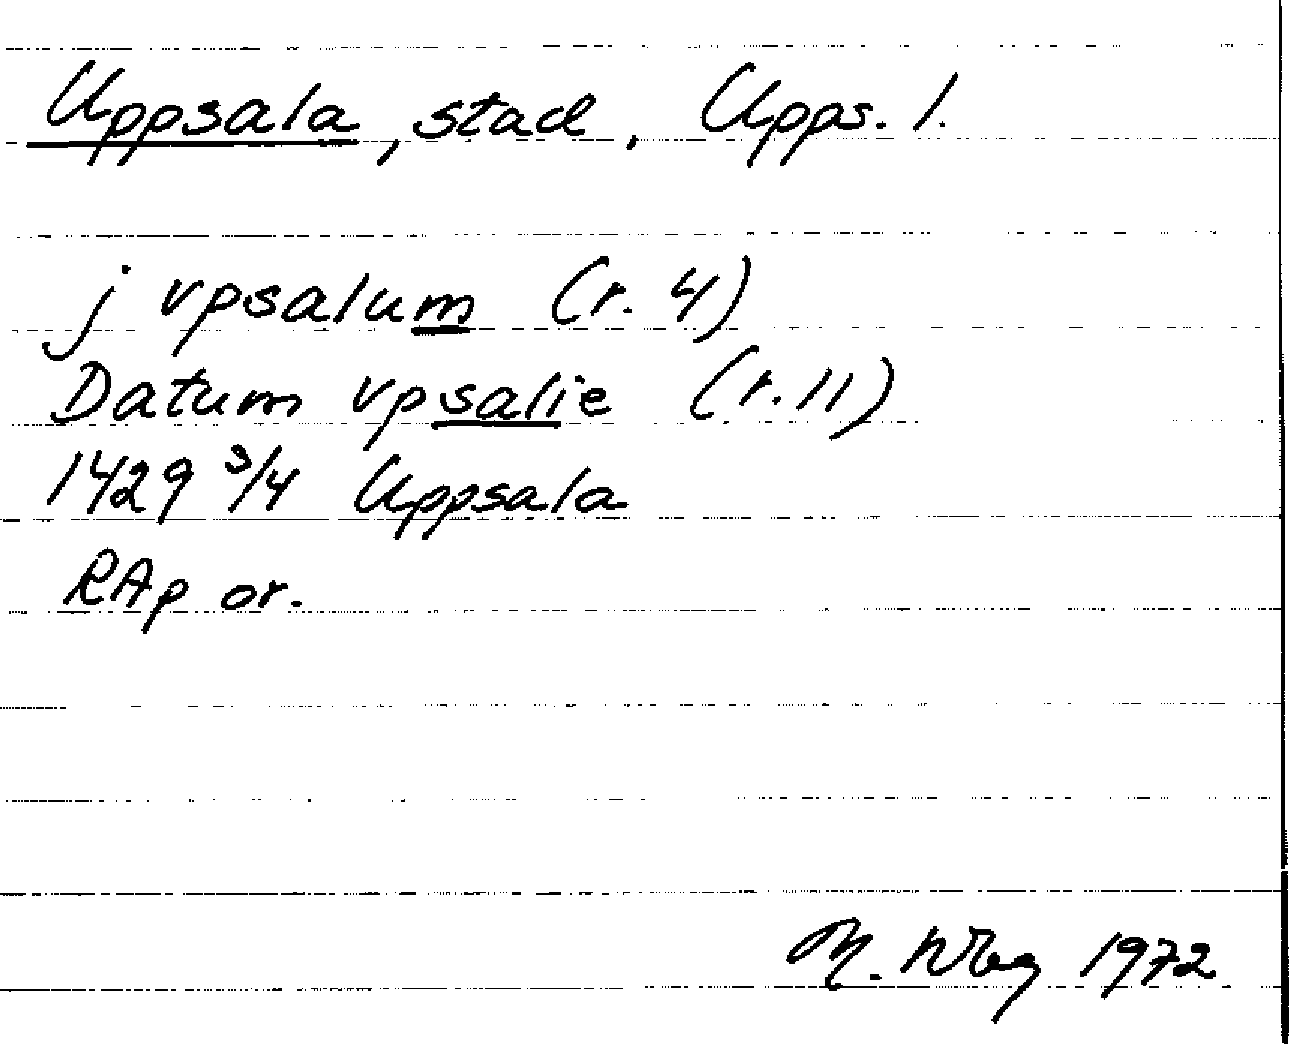 Uppsala, stad, Upps. l.
j vpsalum (r. 4)
Datum vpsalie (r. 11)
1429 3/4 Uppsala
RAp or.
M. 1972